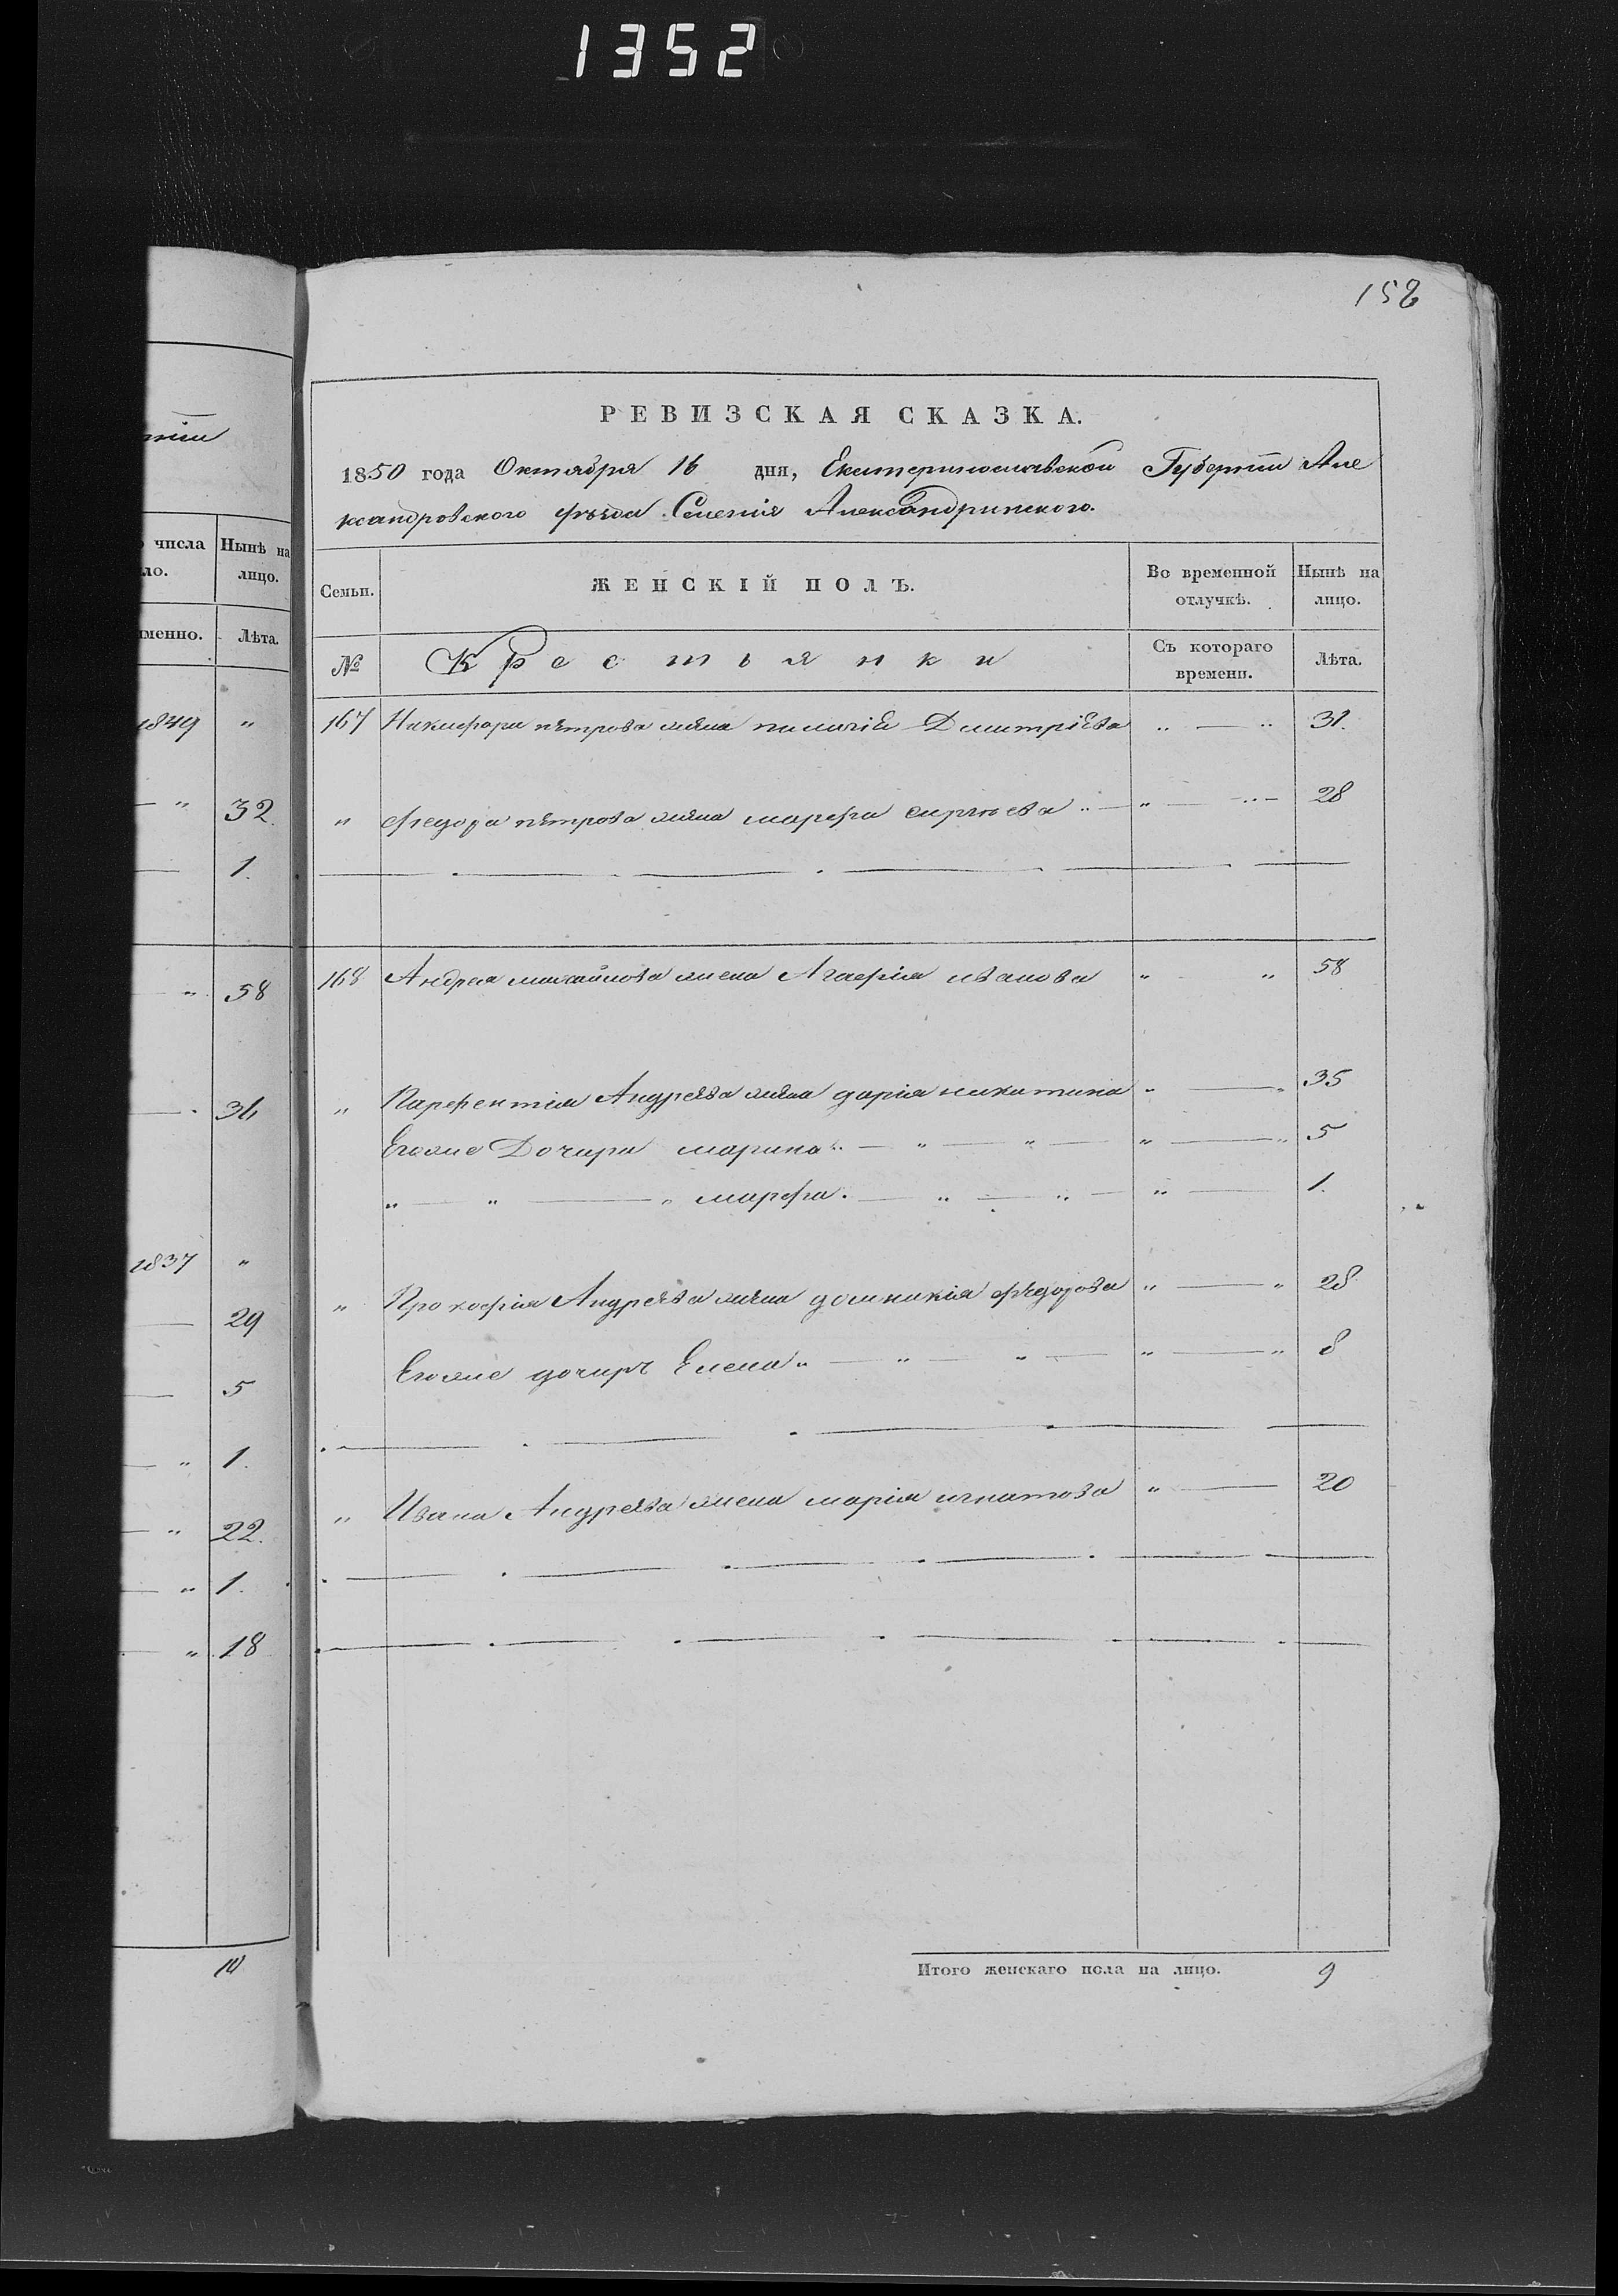 1352
158
РЕВИЗСКАЯ СКАЗКА.
1850 года Октября 16 дня, Екатеринославской Губернии Але
ксандровского уъзда Селения Александринского.
числа
ло.
Нынѣ на
лицо.
именно.
Лѣта.
1849 "
" 32.
1.
" 58
36
1837 "
29
5
" 1.
" 22.
" 1.
" 18
10
Семьи.
ЖЕНСКІЙ ПОЛЪ.
Во временной
отлучкѣ.
Нынѣ на
лицо.
№
Крестьянки
Съ котораго
времени.
Лѣта.
167 Никифора петрова жена Дмитріева " — " 31.
" Федора петрова жена марфа сиргѣева " — " — " — 28
168 Андрея михайлова жена Агафія иванова " " 58
" Парфентія Андреева жена дарія никитина " — " 35
Егоже Дочири марина " — " — " — " — " 5
" — " — " марфа. — " — " — " — 1.
" Прокофія Андреева жена домникія федорова " — " 28
Егоже дочирь Елена " — " — " — " — " 8
" Ивана Андреева жена марія игнатова " — 20
Итого женскаго пола на лицо. 9